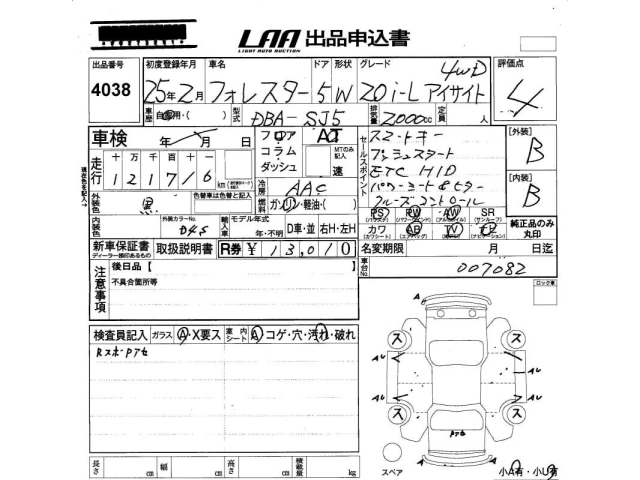 LAA 出品申込書
LIGHT AUTO AUCTION
出品番号 初度登録年月 車名 ドア 形状 グレード 評価点
4038 25年2月 フォレスター 5 W 20i-L アイサイト 4WD 4
車歴 自家用・( ) 型式 DBA-SJ5 排気量 2000cc 定員 人
車検 年 月 日 フロア コラム ダッシュ AT MTのみ記入 速
セールスポイント
スマートキー
プッシュスタート
ETC HID
パワーシート&ヒーター
クルーズコントロール
[外装] B
[内装] B
純正品のみ丸印
走行 十万千百十 121716 km
現在色を記入→
冷房 AAC
外装色 黒 色替車は色替と記入 燃料 ガソリン・軽油・( )
外装カラーNo. D4S
輸入車 モデル年式 年・不明 D車・並 右H・左H
PS PW AW SR
カワ AB TV ナビ
新車保証書 ディーラー捺印あるもの 取扱説明書 R券 ¥13,010
名変期限 月 日迄
車台No. 007082
注意事項
後日品【 】
不具合箇所等
ロック車
検査員記入 ガラス A・X要ス 室内シート A コゲ・穴・汚れ・破れ
RスポPTセ
A
ス ス
AU AU
AU AU
ス ス
PTセ
A A
スペア
小A有・小U有
長さ cm 幅 cm 高さ cm 積載量 kg